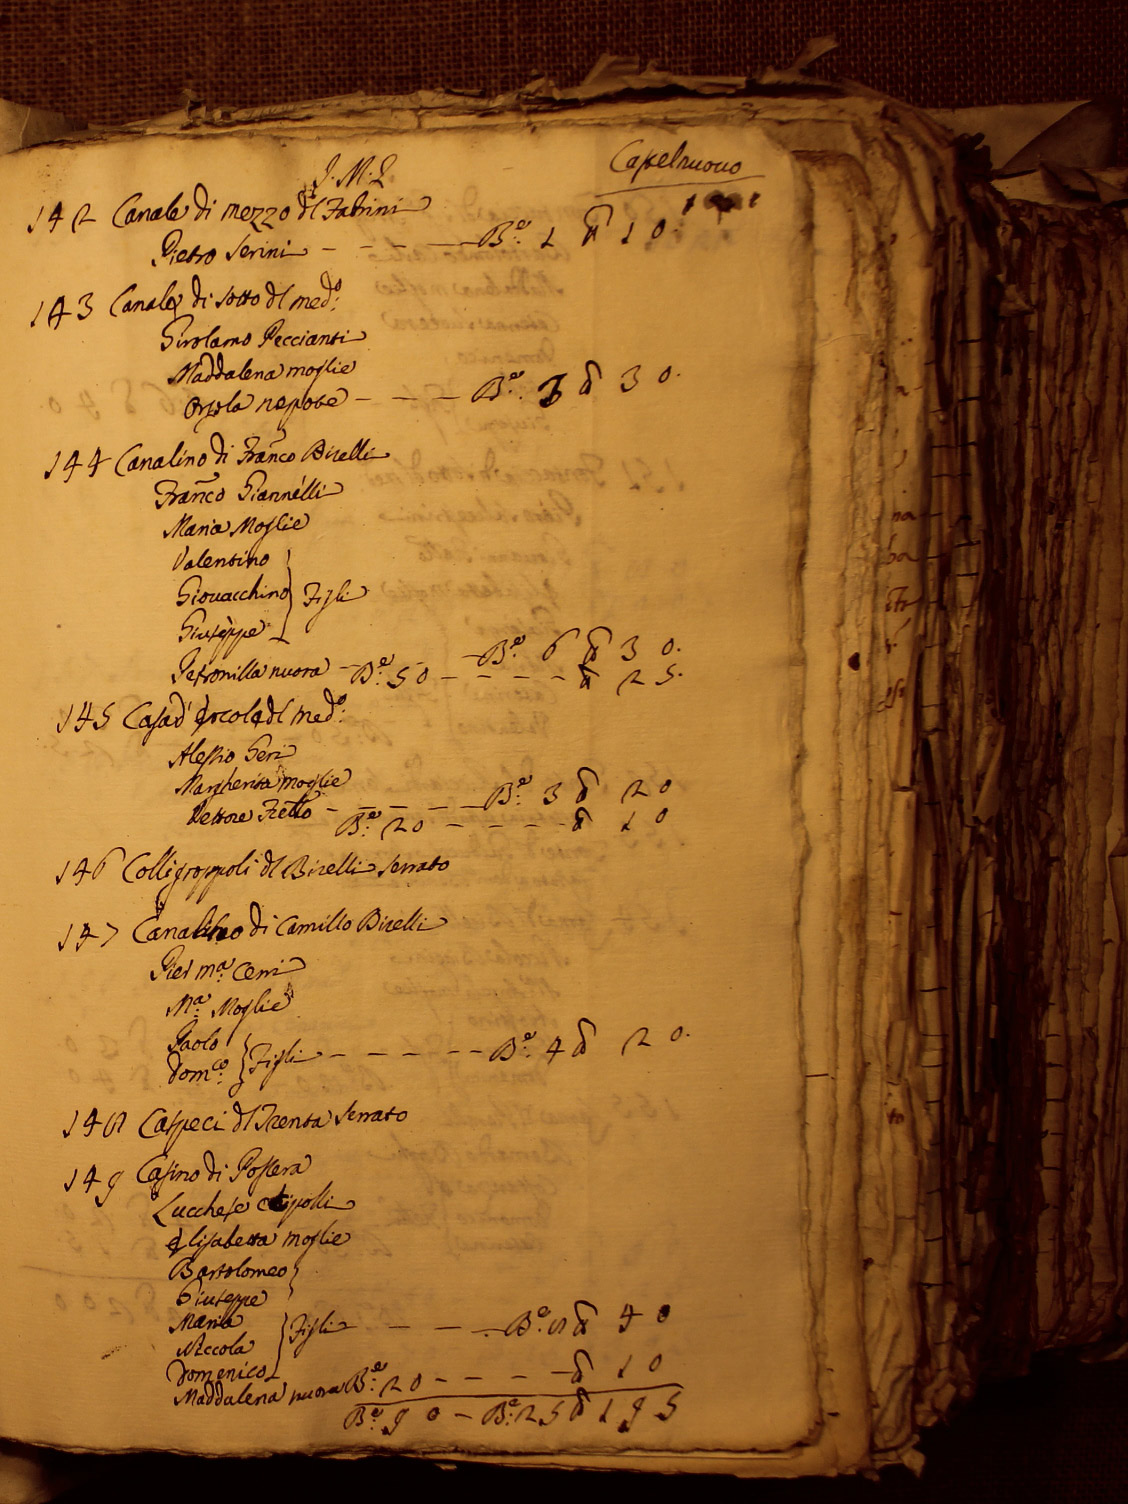 J. M. J.
Castelnuouo
142 Canale di mezzo dl Fabrini
Pietro Serini — — — — Bᵉ: 1 đ 1 0.
143 Canale di sotto dl medº:
Girolamo Peccianti
Maddalena moglie
Orsola nepote — — — Bᵉ: 3 đ 3 0.
144 Canalino di Franco Birelli
Franco Giannelli
Maria Moglie
Valentino
Giouacchino Figli
Giuseppe
— Bᵉ: 6 đ 3 0.
Petronilla nuora — Bᵉ: 50 — — — — đ 2 5.
145 Casa d' dl medº:
Alessio Geri
Margherita moglie
Vettore Fretto — — — — — Bᵉ: 3 đ 2 0
Bᵉ: 20 — — — — đ 1 0
146 Colligroppoli dl Birelli serrato
147 di Camillo Birelli
Pier mª: Cerri
Mª: Moglie
Paolo
Domco: Figli — — — — — Bᵉ: 4 đ 2 0.
148 Caspeci dl Trenta serrato
149 Casino di Postera
Lucchese
Elisabetta moglie
Bartolomeo
Giuseppe
Maria Figli — — — Bᵉ: 8 đ 4 0
Niccola
Domenico — đ 1 0
Maddalena nuora Bᵉ: 20 — — —
Bᵉ: 9 0 — Bᵉ: 25 đ 1 9 5